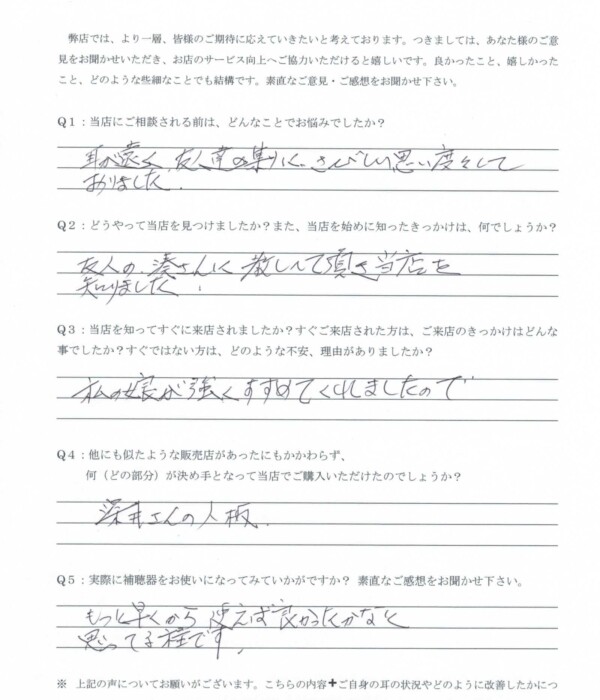 弊店では、より一層、皆様のご期待に応えていきたいと考えております。つきましては、あなた様のご意
見をお聞かせいただき、お店のサービス向上へご協力いただけると嬉しいです。良かったこと、嬉しかった
こと、どのような些細なことでも結構です。素直なご意見・ご感想をお聞かせ下さい。
Q1：当店にご相談される前は、どんなことでお悩みでしたか？
耳が遠く、友人達の集りに、さびしい思い度々して
おりました。
Q2：どうやって当店を見つけましたか？また、当店を始めに知ったきっかけは、何でしょうか？
友人の、湊さんに教しへて頂き当店を
知りました。
Q3：当店を知ってすぐに来店されましたか？すぐご来店された方は、ご来店のきっかけはどんな
事でしたか？すぐではない方は、どのような不安、理由がありましたか？
私の娘が強くすすめてくれましたので
Q4：他にも似たような販売店があったにもかかわらず、
何（どの部分）が決め手となって当店でご購入いただけたのでしょうか？
深井さんの人板.
Q5：実際に補聴器をお使いになってみていかがですか？ 素直なご感想をお聞かせ下さい。
もっと早くから使えば良かったかなと
思ってる程です。
※ 上記の声についてお願いがございます。こちらの内容+ご自身の耳の状況やどのように改善したかにつ